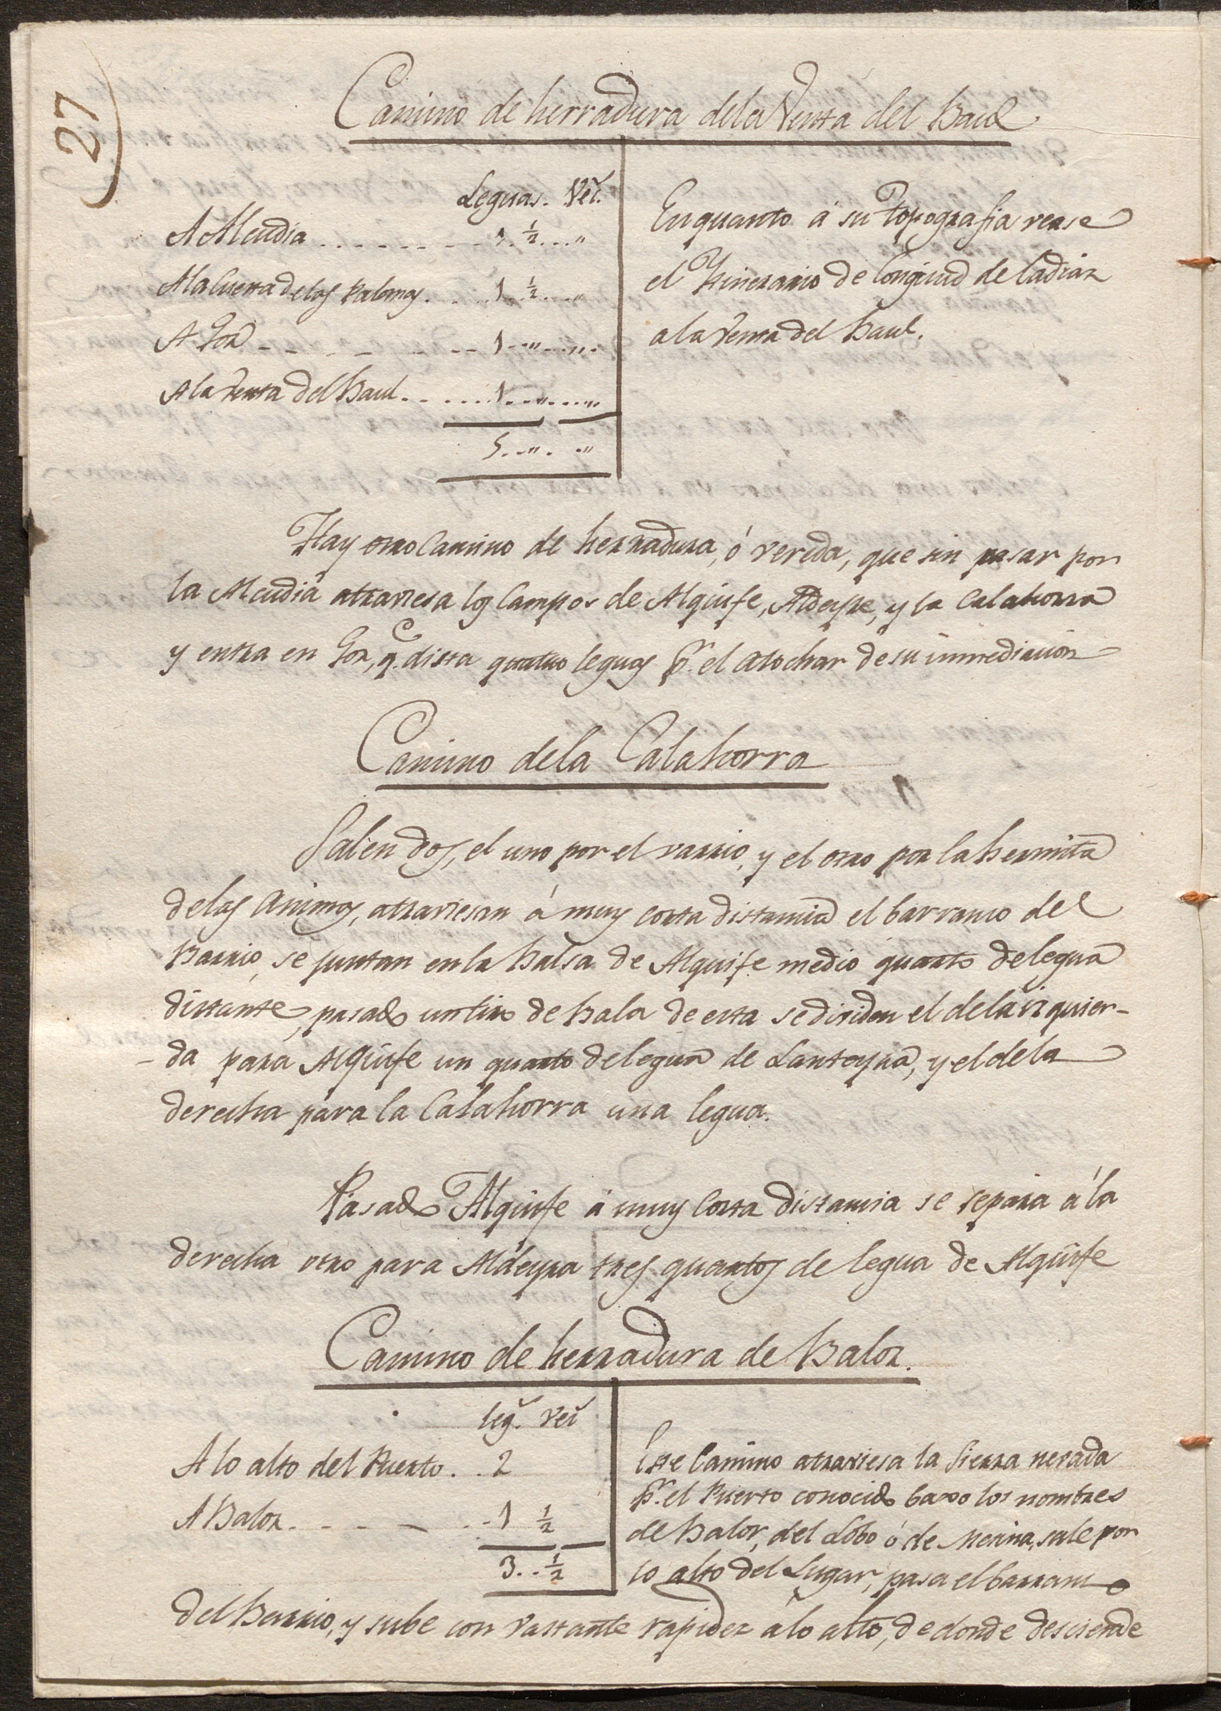 27)
Camino de herradura dela Venta del Baul
Leguas. Vec.
A Alcudia . . . . . . . . 1. ½ . . . "
A la Cuesta de las Palomas . . . 1 ½ . . . "
A Gor . . . . . . . 1 . . " . . . "
A la Venta del Baul . . . . . 1 . . " . . . . "
5 . . " . . "
En quanto á su Topografia vease
el Ytinerario de longitud de Cadiar
a la Venta del Baul.
Hay otro Camino de herradura, ó vereda, que sin pasar por
la Alcudia atraviesa los Campos de Alquife, Aldeyre, y la Calahorra
y entra en Gor, q.e dista quatro leguas p.r el Atochar de su inmediacion
Camino dela Calahorra
Salen dos, el uno por el varrio, y el otro por la hermita
delas Animas, atraviesan á muy corta distancia el barranco del
Barrio, se juntan en la Balsa de Alquife medio quarto de legua
distante, pasado un tiro de bala de esta se dividen el dela izquier-
-da para Alquife un quarto de legua de Lanteyra, y el dela
derecha para la Calahorra una legua.
Pasado Alquife á muy Corta distancia se separa á la
derecha otro para Aldeyra tres quartos de legua de Alquife
Camino de herradura de Balor.
leg.s Vec
A lo alto del Puerto . . 2
A Balor . . . . . . . 1 ½
3 . . ½
Este Camino atraviesa la Sierra nevada
p.r el Puerto conocido baxo los nombres
de Balor, del Lobo ó de Merina, sale por
lo alto del Lugar, pasa el barranco
del Barrio, y sube con vastante rapidez a lo alto, de donde desciende